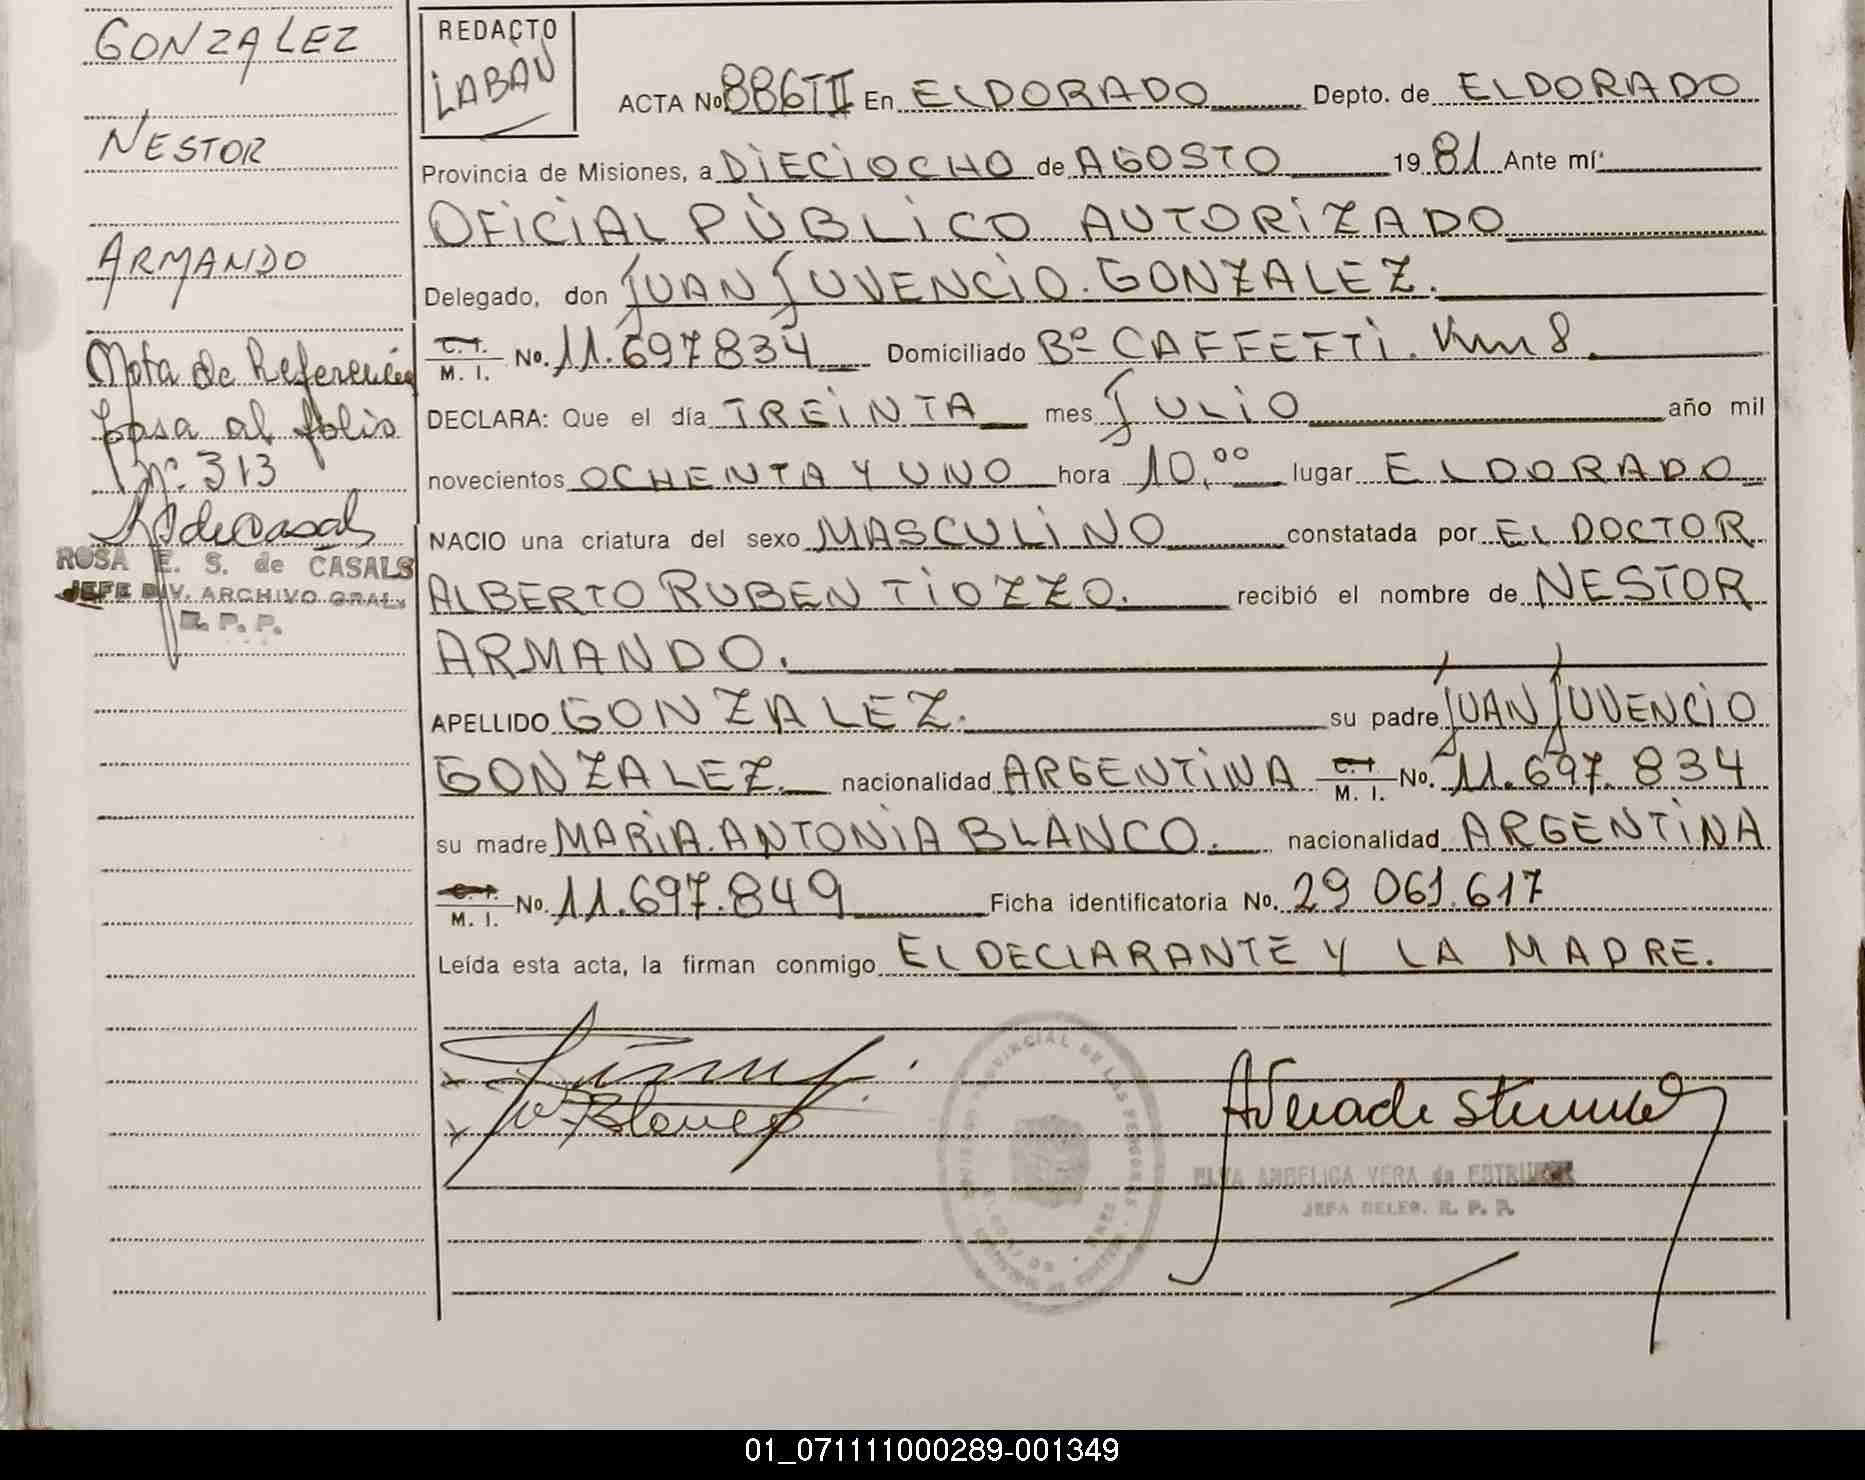 GONZALEZ
NESTOR
ARMANDO
Nota de Referencia
pasa al folio
Nº. 313
ROSA E. S. de CASALS
JEFE DIV. ARCHIVO GRAL.
R. P. P.
REDACTO
LABAN
ACTA No 886TII En ELDORADO Depto. de ELDORADO
Provincia de Misiones, a DIECIOCHO de AGOSTO 1981 Ante mí:
OFICIAL PÚBLICO AUTORIZADO
Delegado, don JUAN JUVENCIO. GONZALEZ.
C. I. M. I. No. 11.697834 Domiciliado Bº CAFFETTI. Km 8.
DECLARA: Que el día TREINTA mes JULIO año mil
novecientos OCHENTA Y UNO hora 10,00 lugar ELDORADO
NACIO una criatura del sexo MASCULINO constatada por EL DOCTOR
ALBERTO RUBEN TIOZZO. recibió el nombre de NESTOR
ARMANDO.
APELLIDO GONZALEZ. su padre JUAN JUVENCIO
GONZALEZ. nacionalidad ARGENTINA C. I. M. I. No. 11.697.834
su madre MARIA. ANTONIA BLANCO. nacionalidad ARGENTINA
C. I. M. I. No. 11.697.849 Ficha identificatoria No. 29 061.617
Leída esta acta, la firman conmigo EL DECLARANTE Y LA MADRE.
ELVA ANGELICA VERA de
JEFA DELEG. R. P. P.
01_071111000289-001349